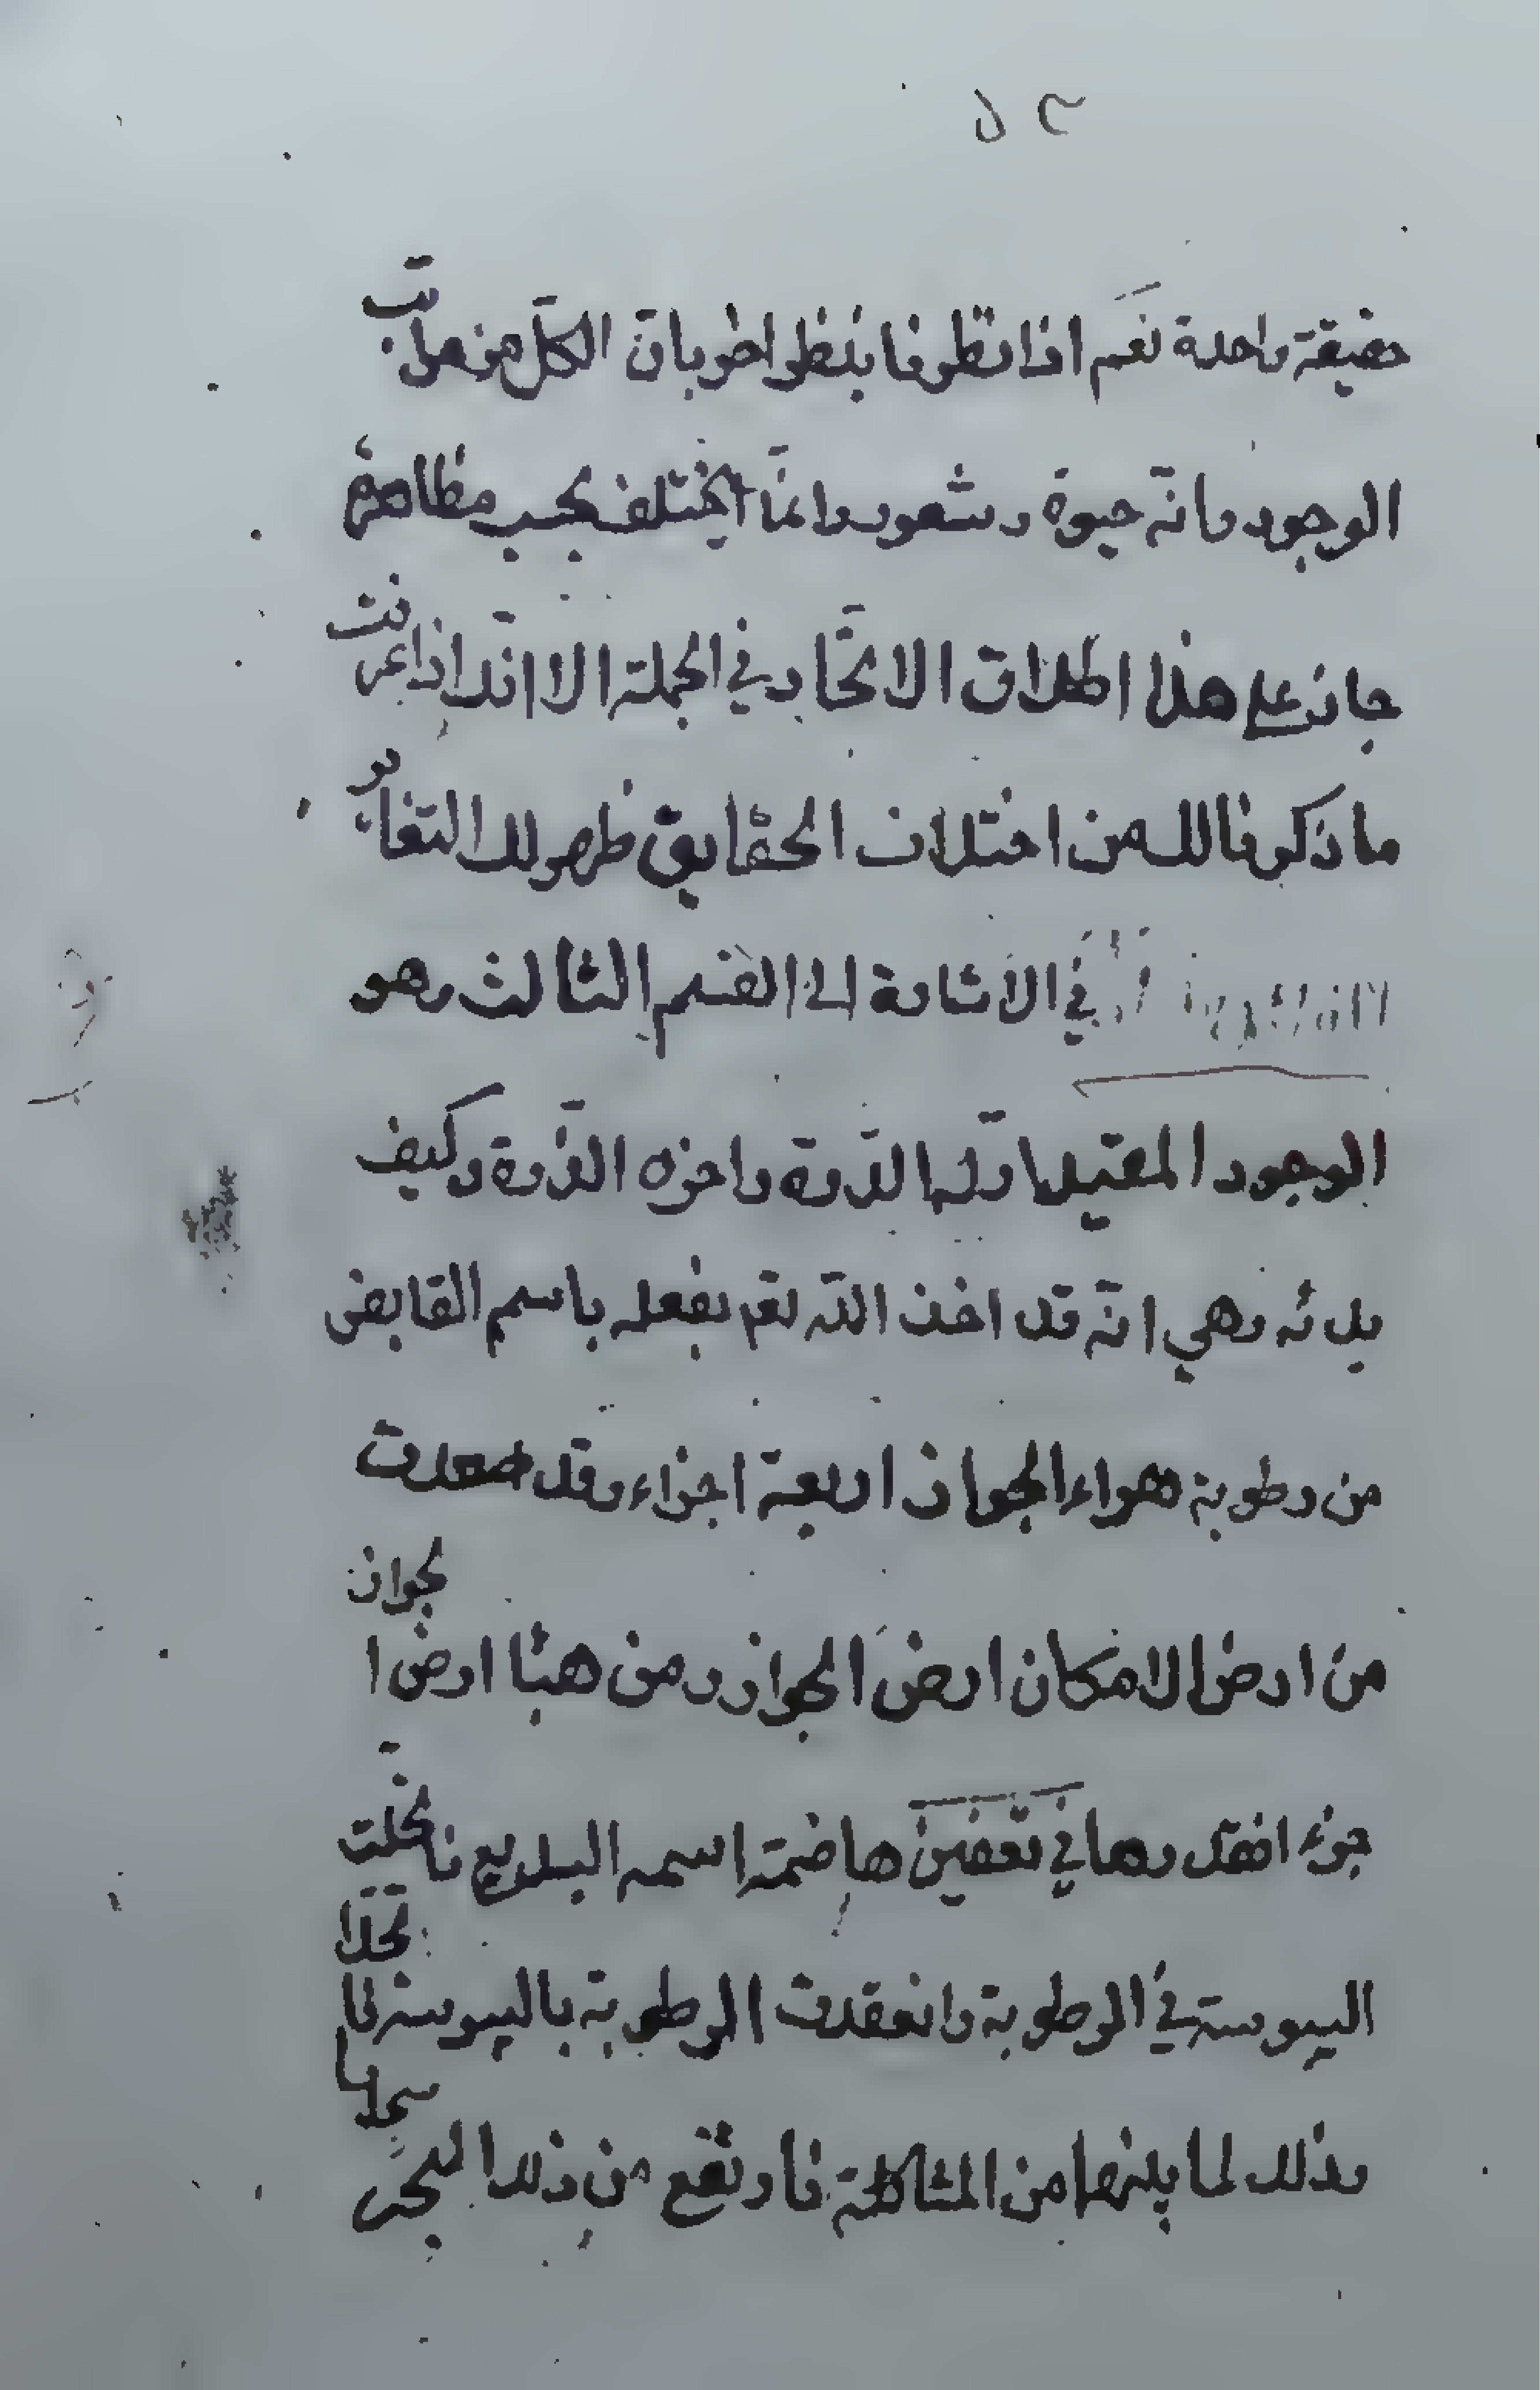 حقيقة واحدة نعم اذا نظرنا بنظر اخر بان الكل من حيث
الوجود وانه حيوة وشعور وانما اختلف بحسب مظاهره
جاز على هذا اطلاق الاتحاد في الجملة الا انك اذا عرفت
ما ذكرنا لك من اختلاف الحقايق ظهر لك التغاير
في الاشارة الى القسم الثالث وهو
الوجود المقيد اوله الدرة واخره الذرة وكيف
بدئه وهي انه قد اخذ الله تعم بفعله باسم القابض
من رطوبة هواء الجواز اربعة اجزاء وقد صعدت
من ارض الامكان ارض الجواز ومن هبا ارض الجواز
جزء افقدرها في تعفين هاضمة اسمه البديع فانحلت
اليبوسة في الرطوبة وانعقدت الرطوبة باليبوسة فاتحدا
وذلك لما بينهما من المشاكلة فارتفع من ذلك البحر سحابا